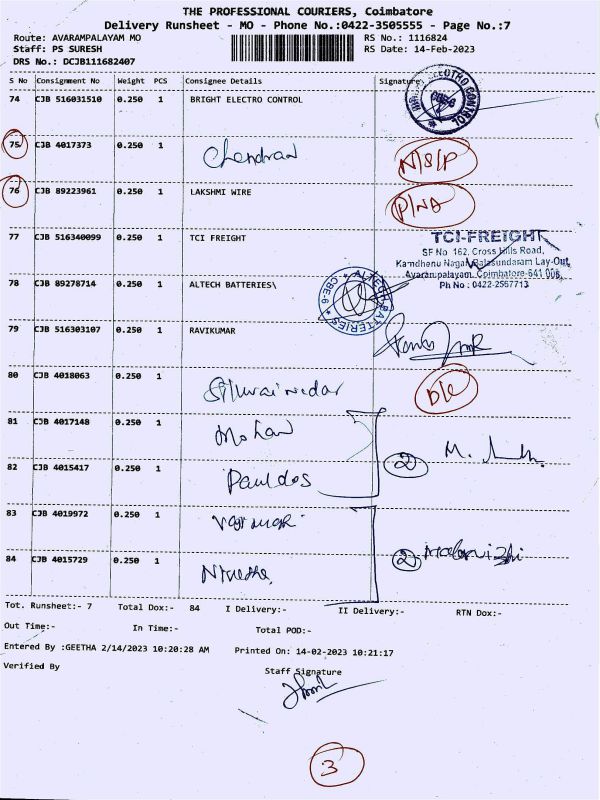 THE PROFESSIONAL COURIERS, Coimbatore
Delivery Runsheet - MO - Phone No.:0422-3505555 - Page No.:7
Route: AVARAMPALAYAM MO RS No.: 1116824
Staff: PS SURESH RS Date: 14-Feb-2023
DRS No.: DCJB111682407
S No Consignment No Weight PCS Consignee Details Signature
74 CJB 516031510 0.250 1 BRIGHT ELECTRO CONTROL
75 CJB 4017373 0.250 1 Chendran N/S/P
76 CJB 89223961 0.250 1 LAKSHMI WIRE P/NA
77 CJB 516340099 0.250 1 TCI FREIGHT
TCI-FREIGHT
SF No 162, Cross Hills Road,
Kamdhenu Nagar, Balasundaram Lay-Out,
Avarampalayam, Coimbatore-641 006,
Ph No : 0422-2567713
78 CJB 89278714 0.250 1 ALTECH BATTERIES\
ALTECH BATTERIES
CBE-6
79 CJB 516303107 0.250 1 RAVIKUMAR
80 CJB 4018063 0.250 1 D/C
81 CJB 4017148 0.250 1 Mohan
2 M.
82 CJB 4015417 0.250 1 Pauldos
83 CJB 4019972 0.250 1
2
84 CJB 4015729 0.250 1
Tot. Runsheet:- 7 Total Dox:- 84 I Delivery:- II Delivery:- RTN Dox:-
Out Time:- In Time:- Total POD:-
Entered By :GEETHA 2/14/2023 10:20:28 AM Printed On: 14-02-2023 10:21:17
Verified By Staff Signature
3